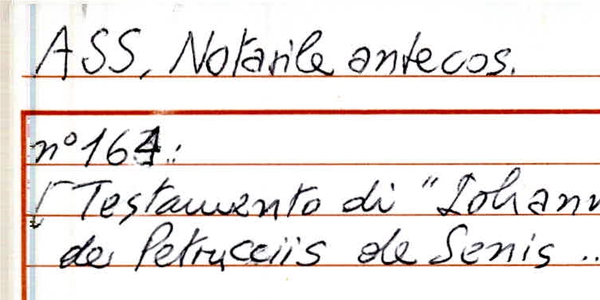 ASS, Notarile antecos.
n° 164:
[Testamento di "Iohann
de Petrucciis de Senis ..